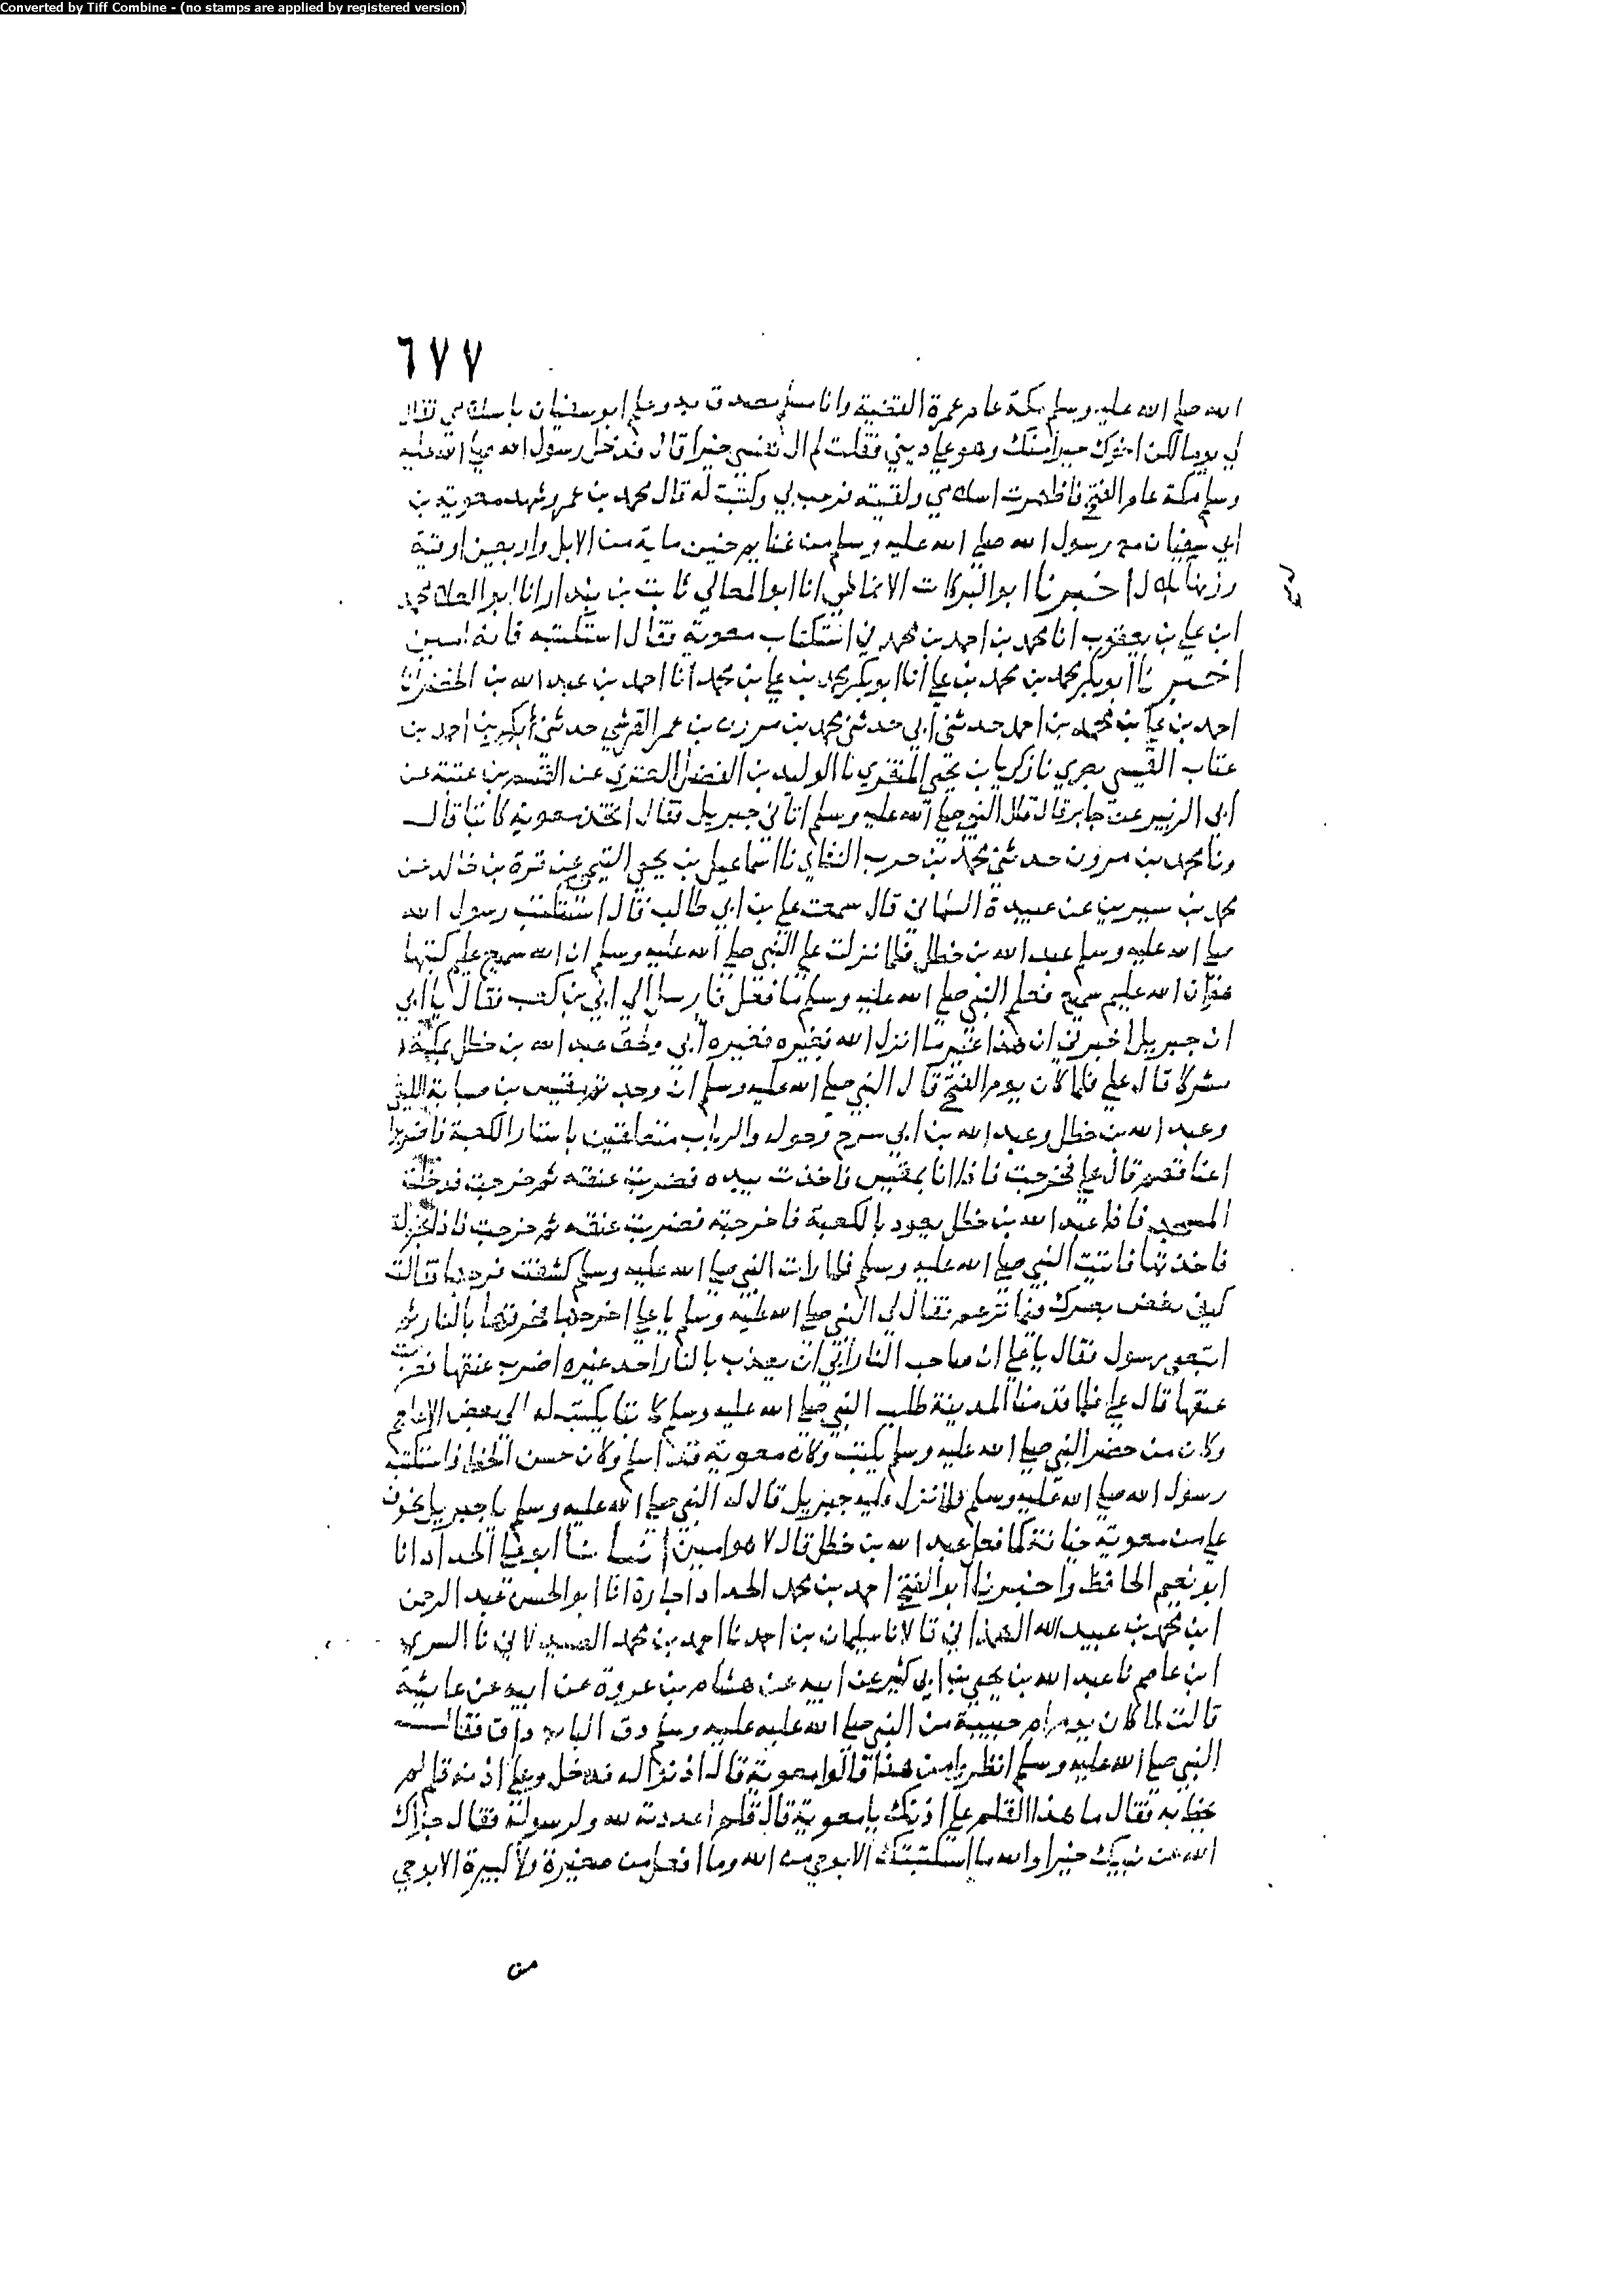 Converted by Tiff Combine - (no stamps are applied by registered version)
٦٧٧
الله صلى الله عليه وسلم بمكة عام عمرة القضية وانا مسلم مصدق به وعلم ابو سفيان باسلامي فقال
لي يوما لكن اخوك خير منك وهو على ديني فقلت لم ال نفسي خيرا قال فدخل رسول الله صلى الله عليه
وسلم مكة عام الفتح فاظهرت اسلامي ولقيته فرحب بي وكتبت له قال محمد بن عمر وشهد معوية بن
ابي سفيان مع رسول الله صلى الله عليه وسلم من غنايم حنين ماية من الابل واربعين اوقية
وزنها بلال اخبرنا ابو البركات الانماطي انا ابو المعالي ثابت بن بندار انا ابو العلاء محمد
ابن علي بن يعقوب انا محمد بن احمد بن محمد في استكتاب معوية فقال استكتبه فانه امين
اخبرنا ابو بكر محمد بن محمد بن علي انا ابو بكر محمد بن علي بن محمد انا احمد بن عبد الله بن الخضر انا
احمد بن علي بن محمد بن احمد حدثني ابي حدثني محمد بن مروان بن عمر القرشي حدثني بكير بن احمد بن
عتاب القيسي بصري نا زكريا بن يحيى المنقري نا الوليد بن الفضل العنزي عن القسم بن عتبة عن
ابي الزبير عن جابر قال قال النبي صلى الله عليه وسلم اتاني جبريل فقال اتخذ معوية كاتبا قال
ونا محمد بن مروان حدثني محمد بن حرب النشاي نا اسماعيل بن يحيى التيمي عن قرة بن خالد عن
محمد بن سيرين عن عبيدة السلماني قال سمعت علي بن ابي طالب قال استكتب رسول الله
صلى الله عليه وسلم عبد الله بن خطل فلما نزلت على النبي صلى الله عليه وسلم ان الله سميع عليم كتبها
ان الله عليم سميع فعلم النبي صلى الله عليه وسلم ما فعل فارسل الى ابي بن كعب فقال يا ابي
ان جبريل اخبرني ان هذا غير ما انزل الله فغيره فغيره ابي ولحق عبد الله بن خطل بمكة
مشركا قال علي فلما كان يوم الفتح قال النبي صلى الله عليه وسلم ان وجدتم مقيس بن صبابة الليثي
وعبد الله بن خطل وعبد الله بن ابي سرح وحوله والرباب متعلقين باستار الكعبة فاضربوا
اعناقهم قال علي فخرجت فاذا انا بمقيس فاخذت بيده فضربت عنقه ثم خرجت فدخلت
المسجد فاذا عبد الله بن خطل يعوذ بالكعبة فاخرجته فضربت عنقه ثم خرجت فاذا
فاخذتها فاتيت النبي صلى الله عليه وسلم فلما رات النبي صلى الله عليه وسلم كشفت فرجها فقالت
كيف بغض بصرك فيما تزعم فقال لي النبي صلى الله عليه وسلم يا علي اخرجها فحرقها بالنار ثم
اتبعه برسول فقال يا علي ان صاحب النار ابى ان يعذب بالنار احد غيره اضرب عنقها فضربت
عنقها قال علي فلما قدمنا المدينة طلب النبي صلى الله عليه وسلم كاتبا يكتب له الى بعض
وكان من حضر النبي صلى الله عليه وسلم يكتب وكان معوية قد اسلم وكان حسن الخط فاستكتبه
رسول الله صلى الله عليه وسلم فلما نزل عليه جبريل قال له النبي صلى الله عليه وسلم يا جبريل تخوف
علي من معوية خيانة كما فعل عبد الله بن خطل قال لا هو امين انبانا ابو علي الحداد انا
ابو نعيم الحافظ واخبرنا ابو الفتح احمد بن محمد الحداد اجازة انا ابو الحسن عبد الرحمن
ابن محمد بن عبيد الله الهمذاني قالا نا سليمان بن احمد نا احمد بن محمد الصيدلاني نا السري
ابن عاصم نا عبد الله بن يحيى بن ابي كثير عن ابيه عن هشام بن عروة عن ابيه عن عايشة
قالت لما كان يوم ام حبيبة من النبي صلى الله عليه وسلم دق الباب داق فقال
النبي صلى الله عليه وسلم انظروا من هذا قالوا معوية قال ائذنوا له فدخل وعلى اذنه قلم لم
يخط به فقال ما هذا القلم على اذنك يا معوية قال قلم اعددته لله ولرسوله فقال جزاك
الله عن نبيك خيرا والله ما استكتبتك الا بوحي من الله وما افعل من صغيرة ولا كبيرة الا بوحي
من